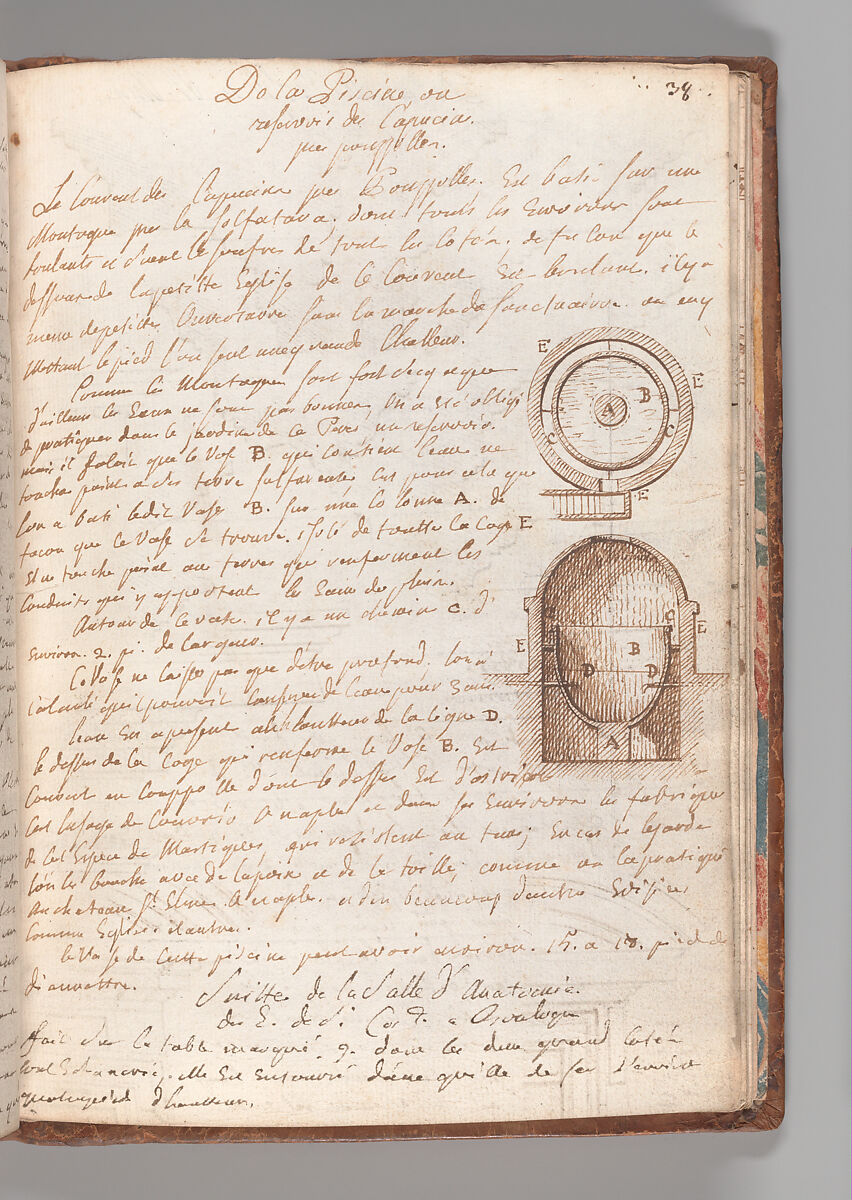 38
De la Piscine ou
reservoir des Capucin
pres pouzzolles.
Le Couvent des Capucins pres Pouzzolles. Est bati sur une
Montagne pres la Solfatara, dont touts les Environs sont
brulants et d'ou le soufres de tout les cotés. de facon que le
dessus de la petitte Eglise de ce Couvent Est brulant. il y a
meme de petittes Ouvertures sur la marche du sanctuaire. ou en y
Mettant le pied l'on sent une grande Challeur.
Comme la Montagne sont fort sec que
d'ailleurs les Eaux ne sont pas bonnes, On a Est obligé
de pratiquer dans le jardin de ce Peres un reservoir.
mais il faloit que le Vase B. qui contient l'eau ne
touche point a des terre sulfureutes Est pour cela que
l'on a bati ledit Vase B. sur une colonne A. de
facon que le Vase se trouve isolé de toutte la Cage E
Et ne touche point au terres qui renferment les
Conduits qui y apportent les Eaux de pluie.
Autour de ce vase. il y a un chemin C. d'
Environ. 2. pi. de largeur.
Ce Vase ne laisse pas que d'etre profond. l'on a
calculé qu'il pouvoit Contenir de l'eau pour 3 ans.
l'eau Est a present a la hauteur de la ligne D.
le dessus de la Cage qui renferme le Vase B. Est
Couvert en Couppolle d'ont le dessus Est d'astrico
Cest lusage de Couvrir A naples et dans ses Environs les fabrique
de cet Espece de Mastique, qui resistent au tems; En cas de lezarde
l'on les bouche avec de la poix et de la toille, comme on l'a pratiqué
Au chateau St. Elme. A naples. et d'en beaucoup d'autre Edifices
Comme Eglises et autres.
le Vase de Cette piscine peut avoir environ. 15. a 18. pied de
diamettre.
Suitte de la Salle d'Anatomie
de
fait Sur la table marqué. 9. dont les deux grand cotés
sont Echancré, elle Est entouré d'une grille de fer d'environ
d'hauteur.
E
E
A
B
C
C
E
E
C
C
E
E
B
D
D
A